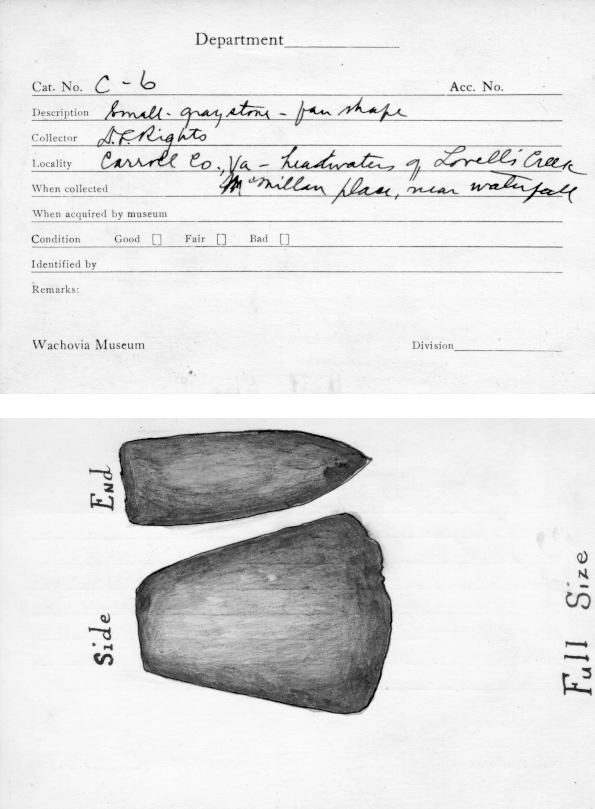 Department
Cat. No. C-6 Acc. No.
Description Small - gray stone - fan shape
Collector D.L. Rights
Locality Carroll Co., Va - headwaters of Lovell's Creek
When collected McMillan place, near waterfall
When acquired by museum
Condition Good [] Fair [] Bad []
Identified by
Remarks:
Wachovia Museum Division
End
Side
Full Size